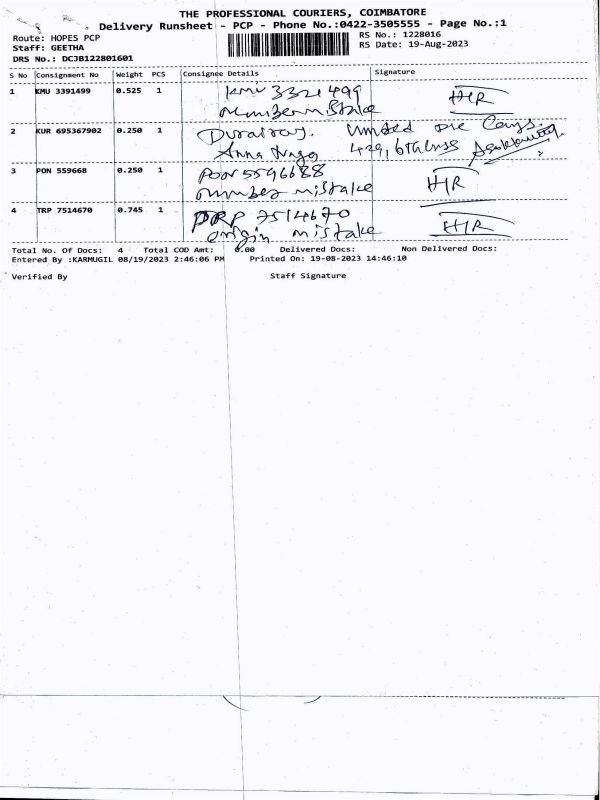 THE PROFESSIONAL COURIERS, COIMBATORE
Delivery Runsheet - PCP - Phone No.:0422-3505555 - Page No.:1
Route: HOPES PCP
Staff: GEETHA
DRS No.: DCJB122801601
RS No.: 1228016
RS Date: 19-Aug-2023
S No Consignment No Weight PCS Consignee Details Signature
1 KMU 3391499 0.525 1 KMU 3321499 H/R
mistake
2 KUR 695367902 0.250 1 Durairaj. United Die Cams.
Anna Nagar
3 PON 559668 0.250 1 PON 5596688 H/R
number mistake
4 TRP 7514670 0.745 1 PRP 7514670 H/R
origin mistake
Total No. Of Docs: 4 Total COD Amt: 0.00 Delivered Docs: Non Delivered Docs:
Entered By :KARMUGIL 08/19/2023 2:46:06 PM Printed On: 19-08-2023 14:46:10
Verified By Staff Signature